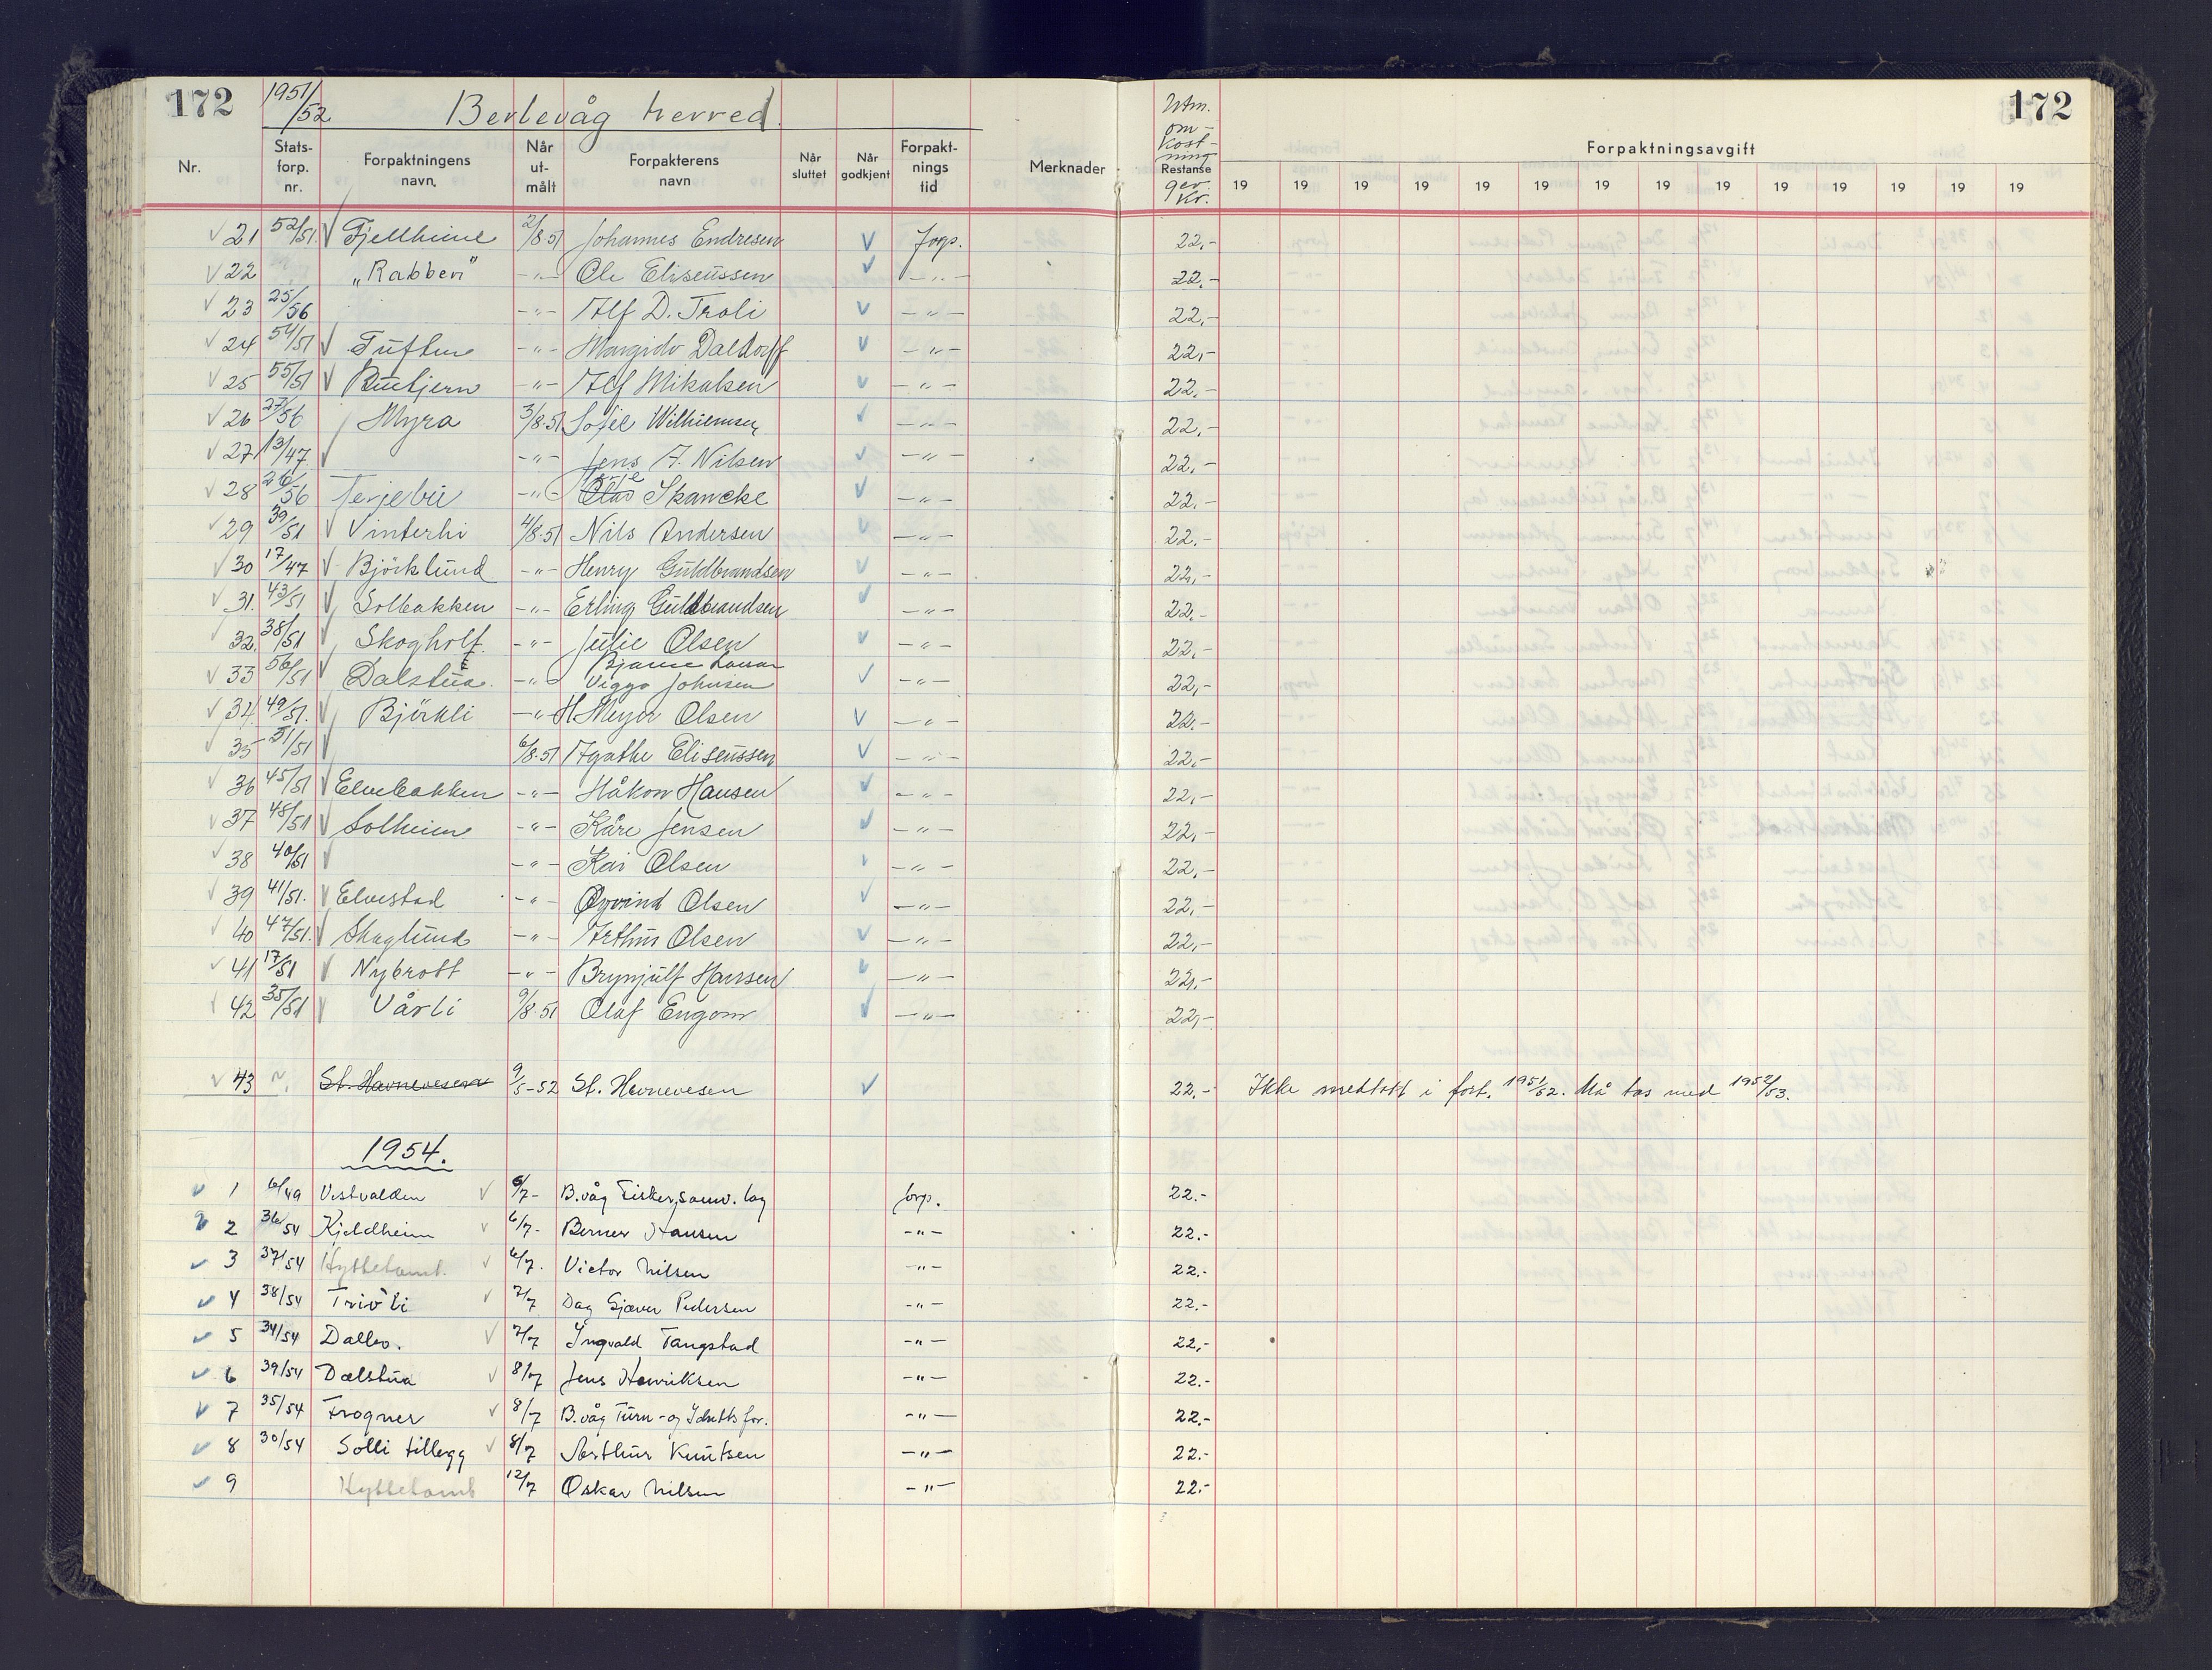 172 1951/52 Berlevåg herred. 172
Nr. Stats-forp. nr. Forpaktningens navn Når ut-målt Forpakterens navn Når sluttet Når godkjent Forpakt-nings tid Merknader Utm. om-kost-ning Restanse Kr. Forpaktningsavgift
19 19 19 19 19 19 19 19 19 19 19 19 19 19
21 52/51 Fjellheim 2/8 51 Johannes Endresen forp. 22,-
22 "Rabben" -"- Ole Eliseussen -"- 22,-
23 25/56 -"- Alf D. Troli -"- 22,-
24 54/51 Tuftene -"- Margido Daldorff -"- 22,-
25 55/51 -"- Alf Mikalsen -"- 22,-
26 27/56 Myra 3/8-51 Sofie Wilhelmsen -"- 22,-
27 13/47 -"- Jens A. Nilsen -"- 22,-
28 26/56 Terjebu -"- Olav Skancke -"- 22,-
29 39/51 Vinterhi 4/8-51 Nils Andersen -"- 22,-
30 17/47 Björklund -"- Henry Guldbrandsen -"- 22,-
31. 43/51 Solbakken -"- Erling Guldbrandsen -"- 22,-
32. 38/51 Skogholt -"- Julie Olsen -"- 22,-
33 56/51 Dalstua -"- Bjarne Larsen Viggo Johnsen -"- 22,-
34. 49/51. Björkli -"- H Meyer Olsen -"- 22,-
35 51/51 6/8-51 Agathe Eliseussen -"- 22,-
36 45/51 Elvebakken -"- Håkon Hansen -"- 22,-
37 48/51 Solheim -"- Kåre Jensen -"- 22,-
38 40/51 -"- Kai Olsen -"- 22,-
39 41/51. Elvestad -"- Øyvind Olsen -"- 22,-
40 47/51. Skoglund -"- Arthur Olsen -"- 22,-
41 17/51 Nybrott -"- Brynjulf Hanssen -"- 22,-
42 35/51 Vårli 9/8-51 Olaf Engom -"- 22,-
43 St. Havnevesen 9/5-52 St. Havnevesen 22,- Ikke medtatt i fort. 1951/52. Må tas med 1952/53.
1954.
1 6/49 Vestvalden 6/7- B.våg Fisker,samv. lag forp. 22.-
2 36/54 Kjeldheim 6/7- Berner Hansen -"- 22.-
3 37/54 Hyttetomt. 6/7. Victor Nilsen -"- 22.-
4 38/54 Trivli 7/7 Dag Gjæver Pedersen -"- 22.-
5 34/54 Dalbo. 7/7 Ingvald Tangstad -"- 22,-
6 39/54 Dalstua 8/7 Jens Henriksen -"- 22.-
7 35/54 Frogner 8/7 B.våg Turn- og Idrettsfor. -"- 22.-
8 30/54 Solli tillegg 8/7 Arthur Knutsen -"- 22.-
9 Hyttetomt 12/7 Oskar Nilsen -"- 22.-